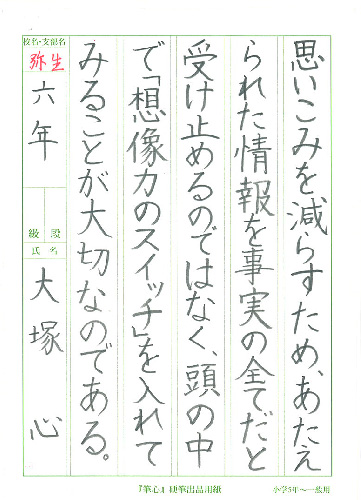 思いこみを減らすため、あたえ
られた情報を事実の全てだと
受け止めるのではなく、頭の中
で「想像力のスイッチ」を入れて
みることが大切なのである。
校名・支部名
弥生
六年
級 段
氏名
大塚 心
『筆心』硬筆出品用紙
小学5年〜一般用